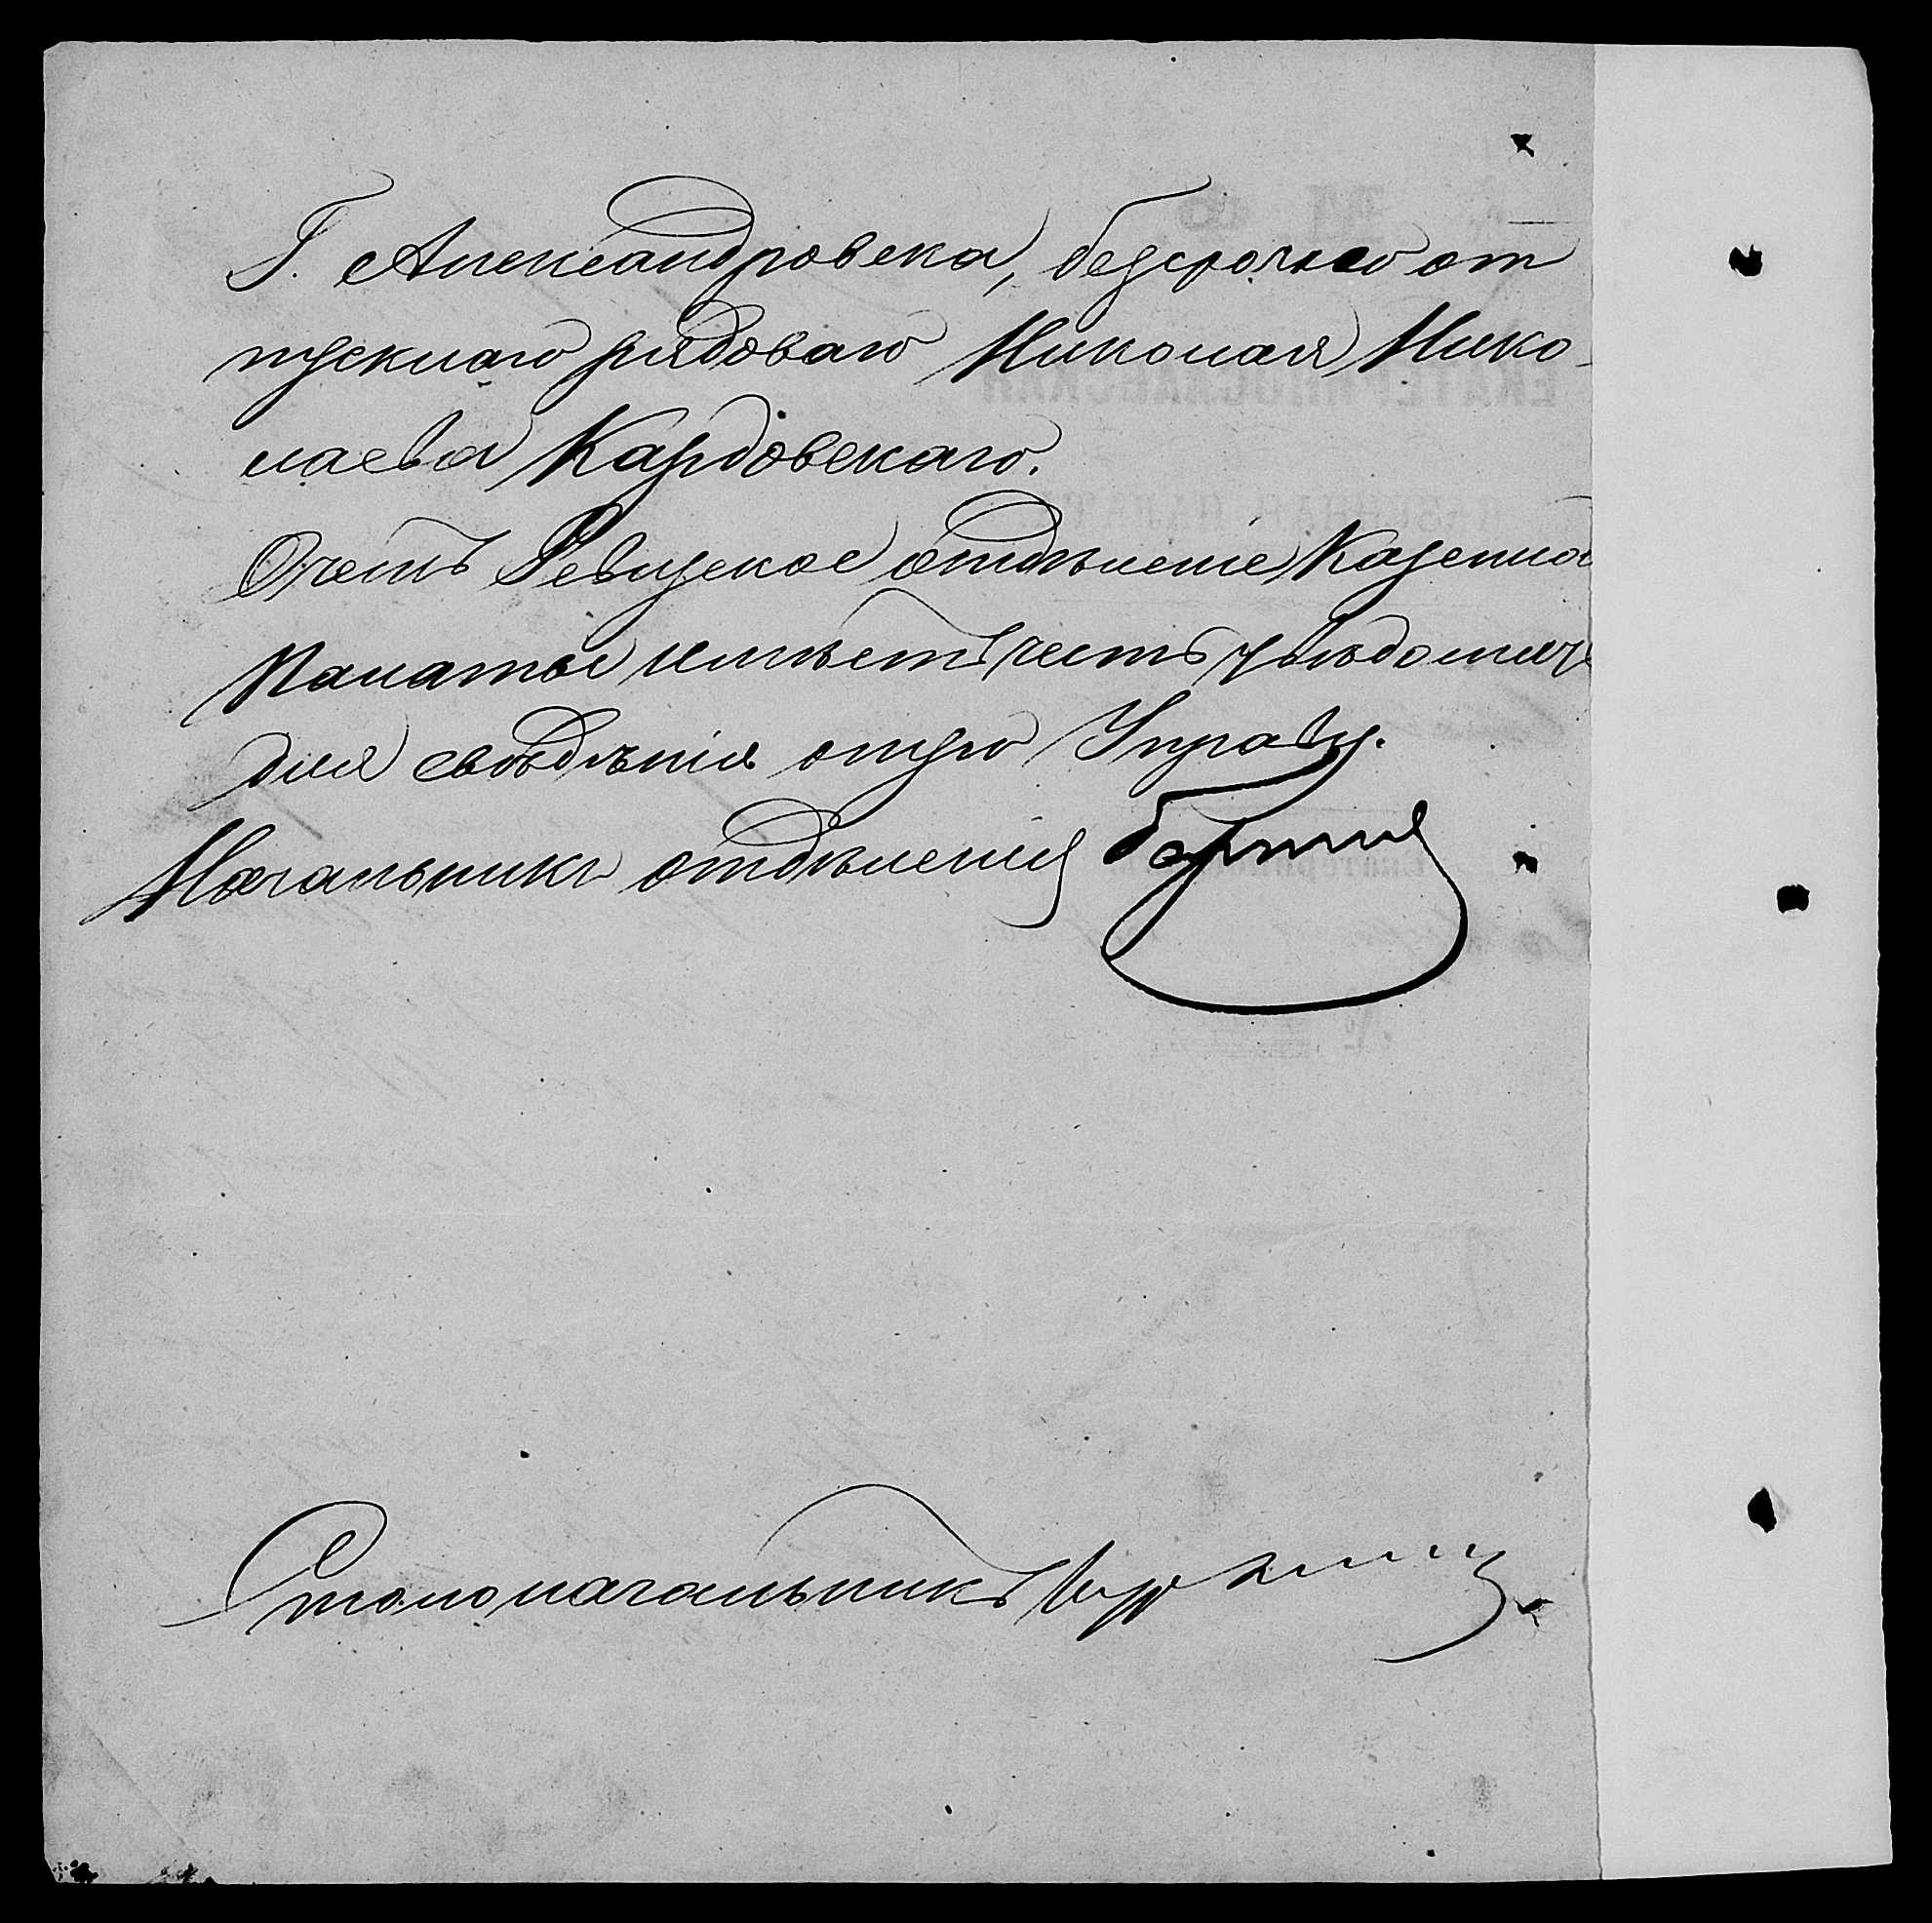 Г. Александровска, безсрочно от
пускнаго рядоваго Николая Нико-
лаева Кардовскаго.
О чемъ Ревизское отдѣленіе Казенной
Палаты имѣетъ честь увѣдомить
для свѣдѣнія оную Управу.
Начальникъ отдѣленія
Столоначальникъ